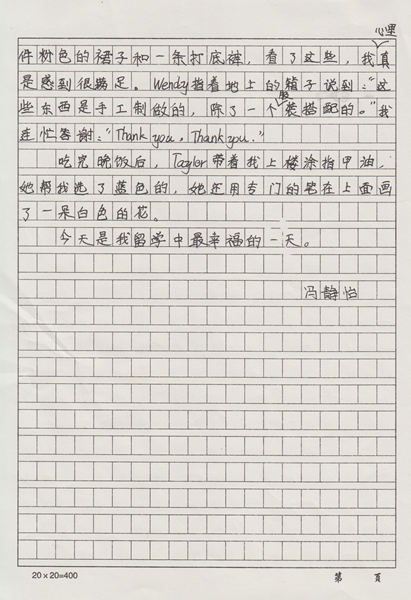 心里
件粉色的裙子和一条打底裤，看了这些，我真
是感到很满足。Wendy指着地上的箱子说到：“这
些东西是手工制做的，除了一个装搭配的。”我
连忙答谢：“Thank you，Thank you.”
吃完晚饭后，Taylor带着我上楼涂指甲油，
她帮我选了蓝色的，她还用专门的笔在上面画
了一朵白色的花。
今天是我留学中最幸福的一天。
冯静怡
20×20=400
第 页